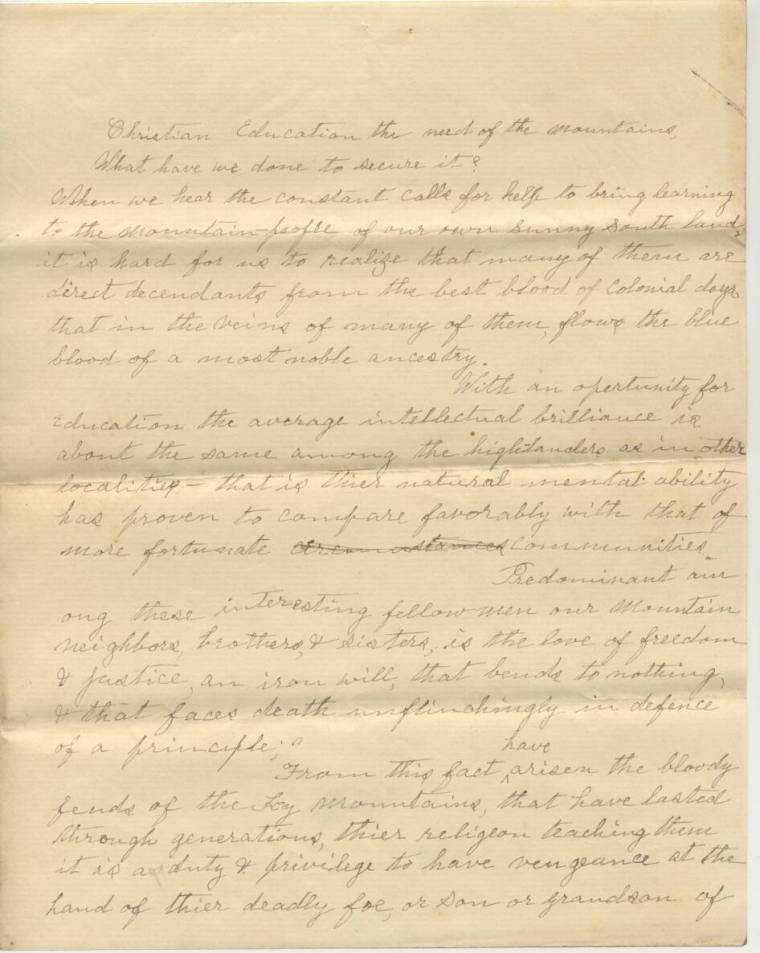 Christian Education the need of the mountains,
What have we done to secure it?
When we hear the constant calls for help to bring learning
to the mountain-people of our own sunny south land,
it is hard for us to realize that many of them are
direct decendants from the best blood of Colonial days,
that in the veins of many of them, flows the blue
blood of a most noble ancestry.
With an opertunity for
Education the average intellectual brilliance is
about the same among the "highlanders as in other
localities - that is thier natural mental ability
has proven to compare favorably with that of
more fortunate circumstances communities.
Predominant am
ong these interesting fellowmen our mountain
neighbors, brothers, & sisters, is the love of freedom
& justice, an iron will, that bends to nothing,
& that faces death unflinchingly in defence
of a principle;"
have
From this fact ^ arisen the bloody
feuds of the Ky mountains, that have lasted
through generations, thier religeon teaching them
it is a duty & privilege to have vengeance at the
hand of thier deadly foe, or son or grandson of